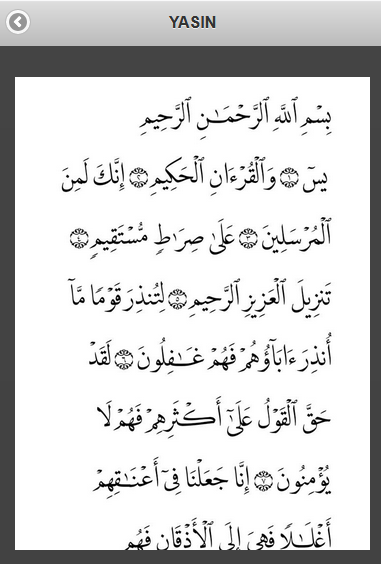 YASIN
بِسْمِ ٱللَّهِ ٱلرَّحْمَـٰنِ ٱلرَّحِيمِ
يسٓ ۝١ وَٱلْقُرْءَانِ ٱلْحَكِيمِ ۝٢ إِنَّكَ لَمِنَ
ٱلْمُرْسَلِينَ ۝٣ عَلَىٰ صِرَٰطٍ مُّسْتَقِيمٍ ۝٤
تَنزِيلَ ٱلْعَزِيزِ ٱلرَّحِيمِ ۝٥ لِتُنذِرَ قَوْمًا مَّآ
أُنذِرَ ءَابَآؤُهُمْ فَهُمْ غَـٰفِلُونَ ۝٦ لَقَدْ
حَقَّ ٱلْقَوْلُ عَلَىٰٓ أَكْثَرِهِمْ فَهُمْ لَا
يُؤْمِنُونَ ۝٧ إِنَّا جَعَلْنَا فِىٓ أَعْنَـٰقِهِمْ
أَغْلَـٰلًا فَهِىَ إِلَى ٱلْأَذْقَانِ فَهُم